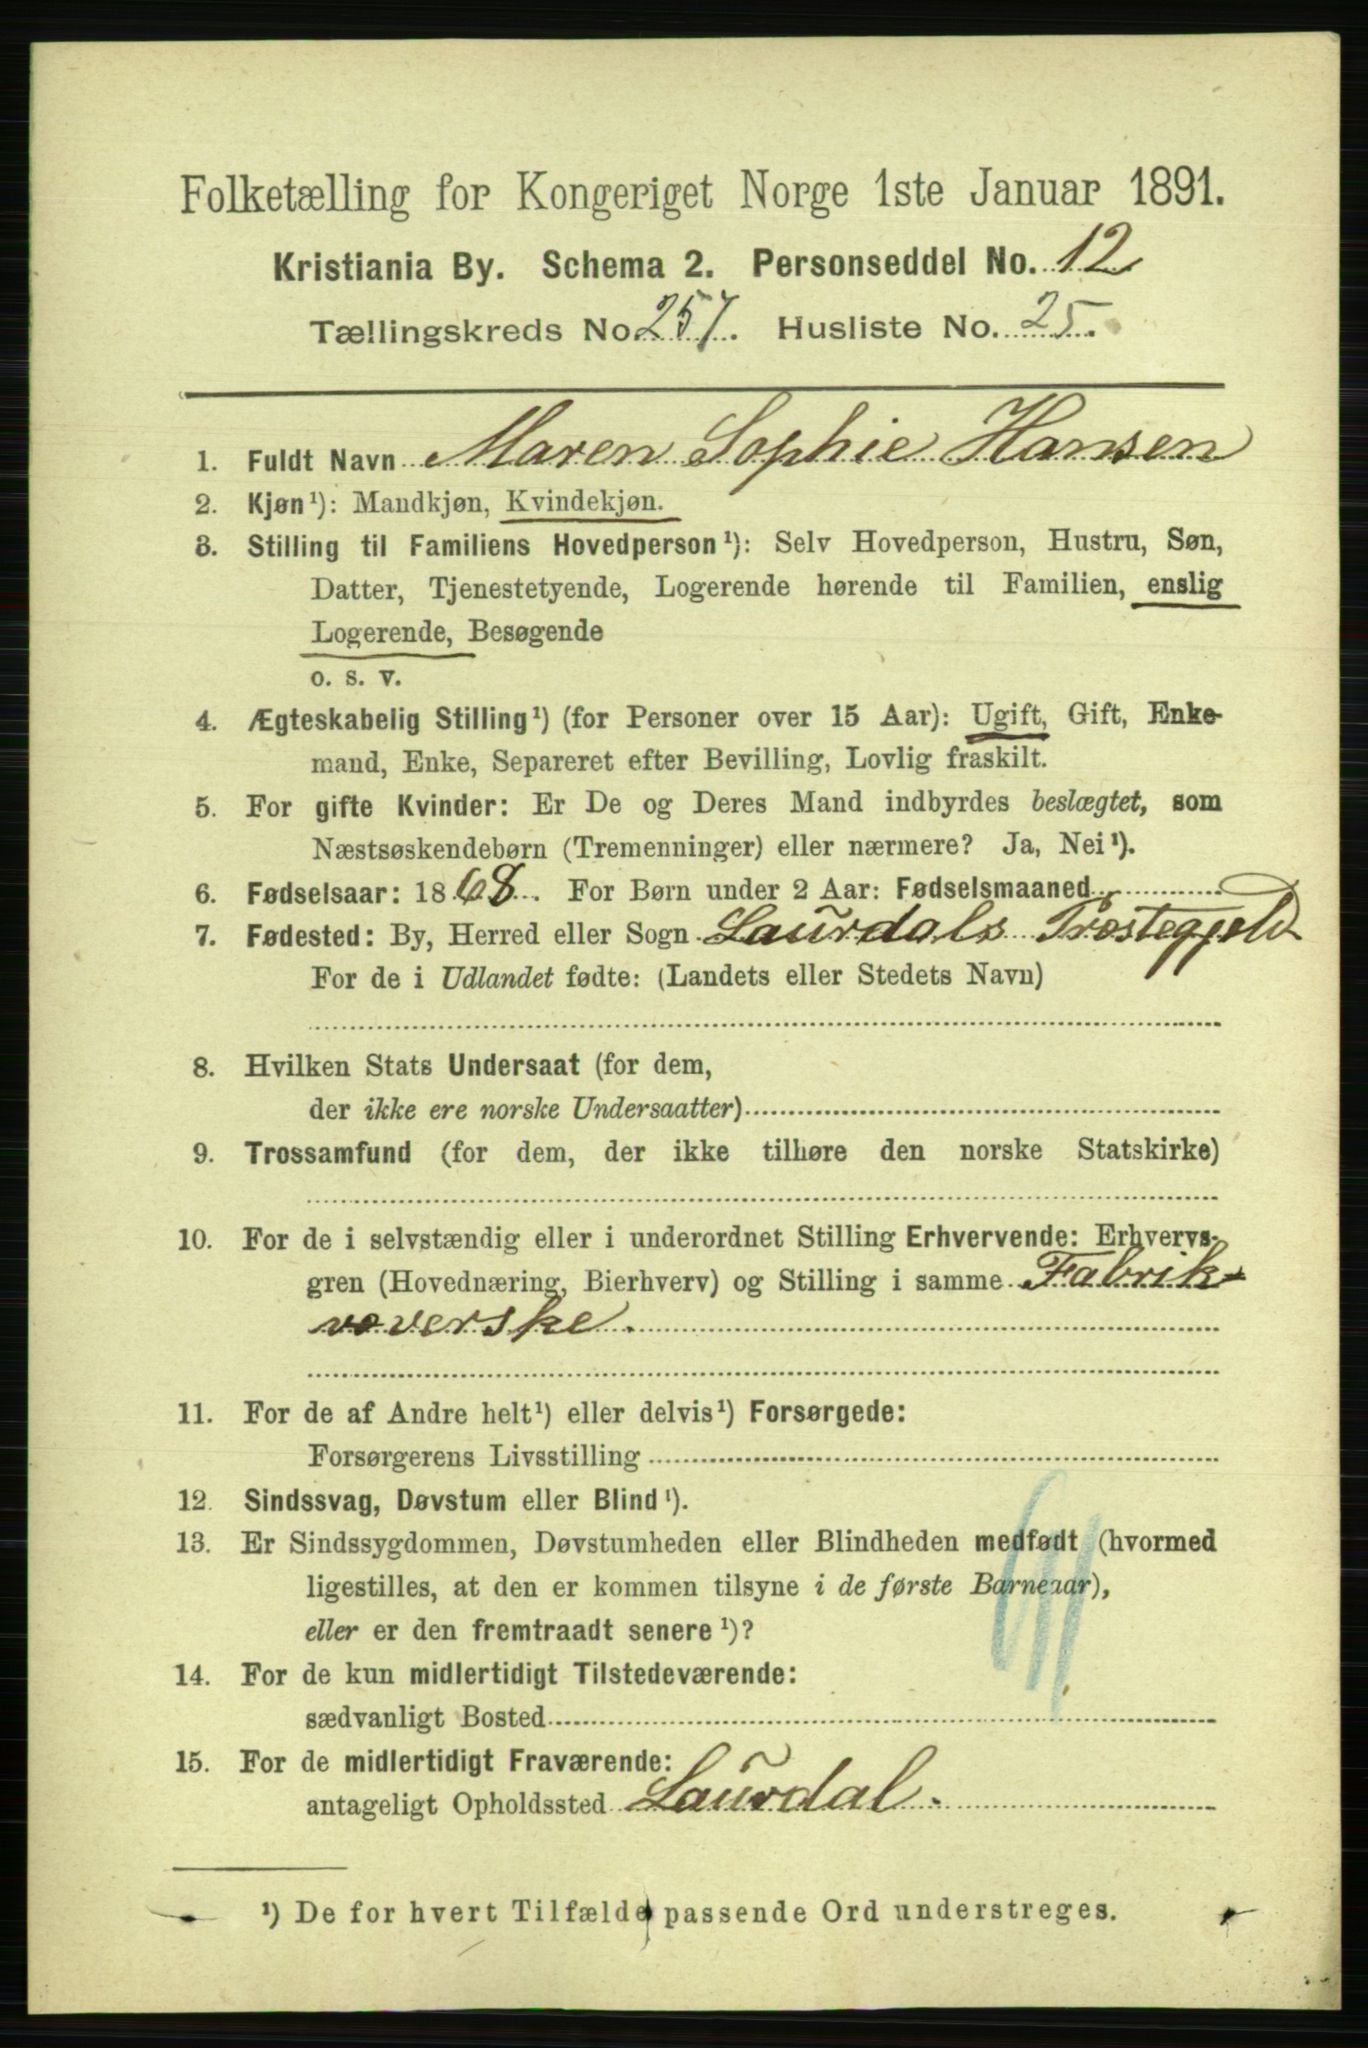 Folketælling for Kongeriget Norge 1ste Januar 1891.
Kristiania By. Schema 2. Personseddel No. 12.
Tællingskreds No. 257. Husliste No. 25.
1. Fuldt Navn Maren Sophie Hansen
2. Kjøn¹): Mandkjøn, Kvindekjøn.
3. Stilling til Familiens Hovedperson¹): Selv Hovedperson, Hustru, Søn,
Datter, Tjenestetyende, Logerende hørende til Familien, enslig
Logerende, Besøgende
o. s. v.
4. Ægteskabelig Stilling¹) (for Personer over 15 Aar): Ugift, Gift, Enke-
mand, Enke, Separeret efter Bevilling, Lovlig fraskilt.
5. For gifte Kvinder: Er De og Deres Mand indbyrdes beslægtet, som
Næstsøskendebørn (Tremenninger) eller nærmere? Ja, Nei¹).
6. Fødselsaar: 1868. For Børn under 2 Aar: Fødselsmaaned
7. Fødested: By, Herred eller Sogn Laurdals Præstegjeld
For de i Udlandet fødte: (Landets eller Stedets Navn)
8. Hvilken Stats Undersaat (for dem,
der ikke ere norske Undersaatter)
9. Trossamfund (for dem, der ikke tilhøre den norske Statskirke)
10. For de i selvstændig eller i underordnet Stilling Erhvervende: Erhvervs-
gren (Hovednæring, Bierhverv) og Stilling i samme Fabrik-
væverske.
11. For de af Andre helt¹) eller delvis¹) Forsørgede:
Forsørgerens Livsstilling
12. Sindssvag, Døvstum eller Blind¹).
13. Er Sindssygdommen, Døvstumheden eller Blindheden medfødt (hvormed
ligestilles, at den er kommen tilsyne i de første Barneaar),
eller er den fremtraadt senere¹)?
14. For de kun midlertidigt Tilstedeværende:
sædvanligt Bosted
15. For de midlertidigt Fraværende:
antageligt Opholdssted Laurdal.
¹) De for hvert Tilfælde passende Ord understreges.